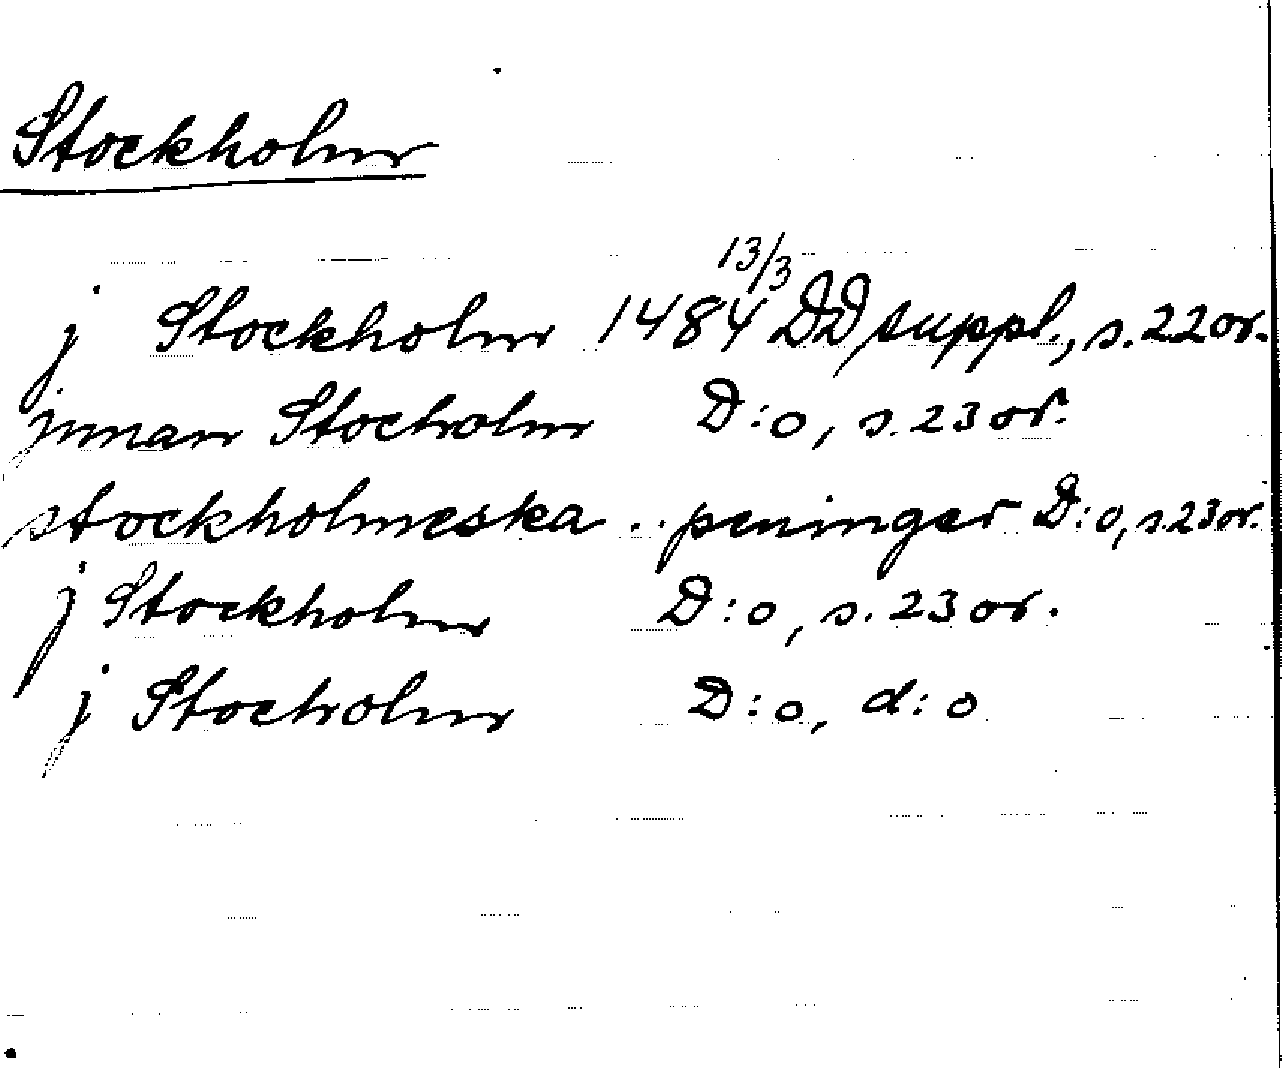 Stockholm
j Stockholm 1484 13/3 DD suppl., s. 22 or.
jnnan Stocholm D:o, s. 23 or.
stockholmeska .. peninger D:o, s. 23 or.
j Stockholm D:o, s. 23 or.
j Stocholm D:o, d:o